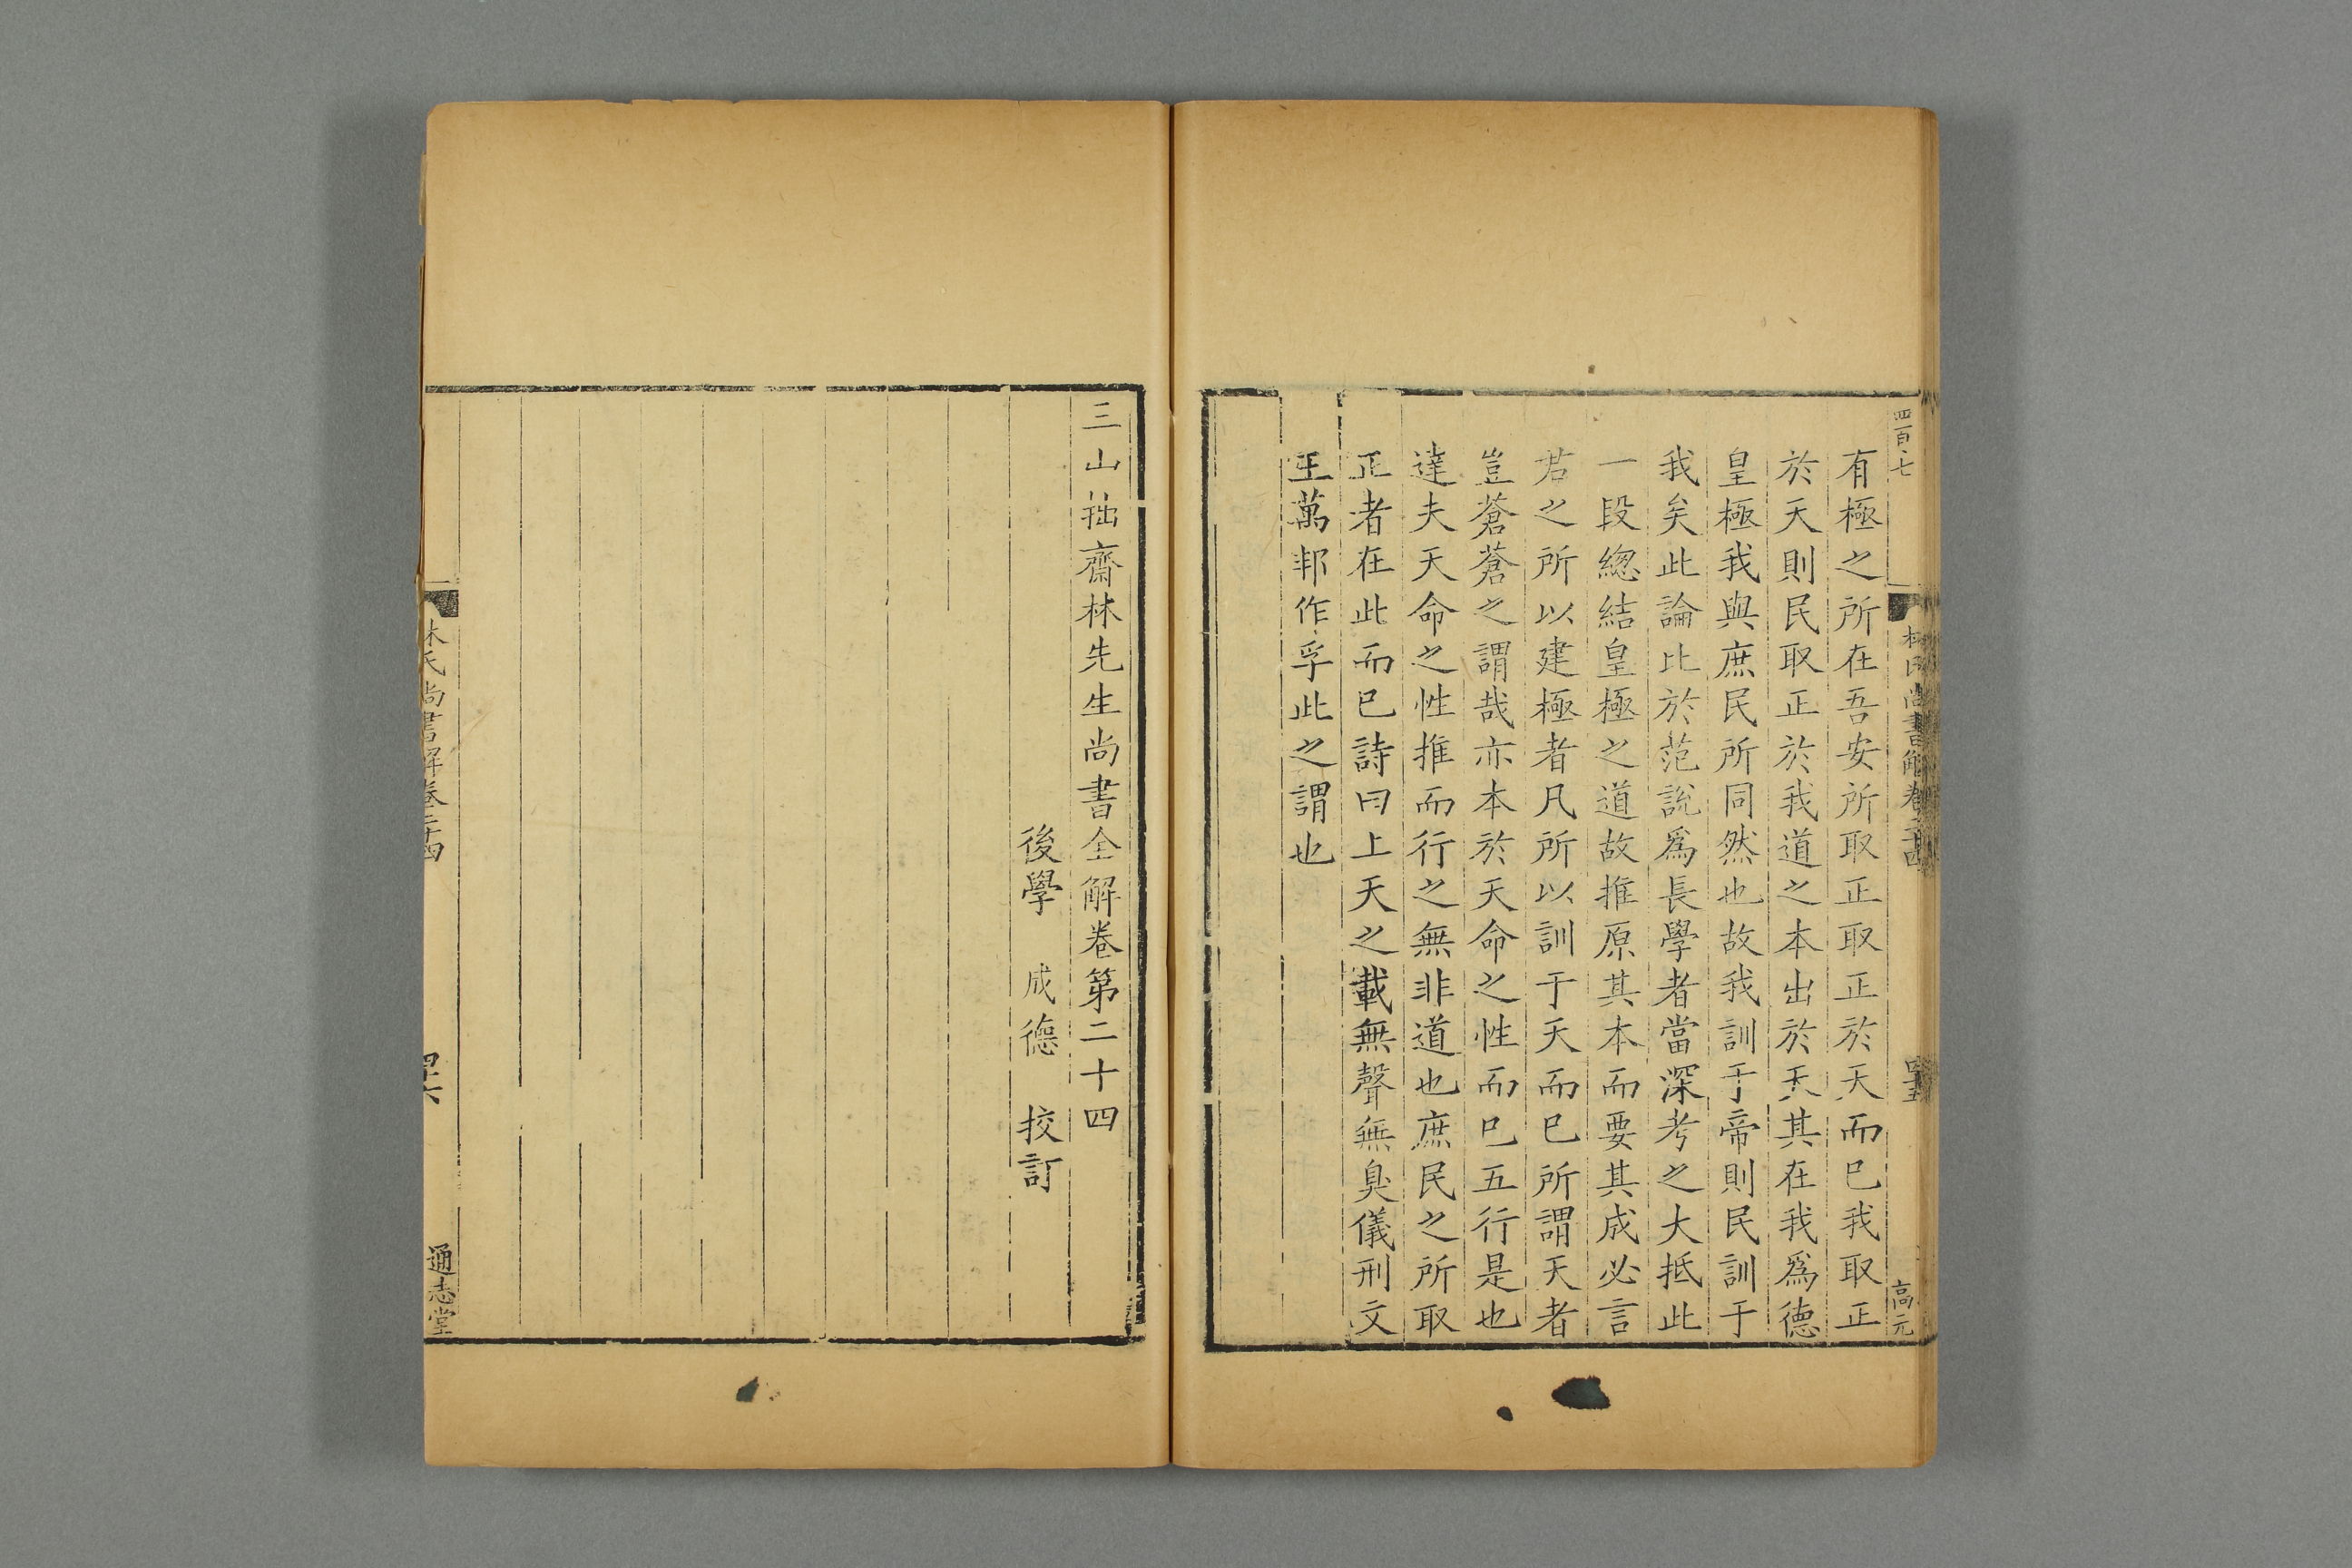 四百七
林氏尚書解卷二十四
高元
有極之所在吾安所取正取正於天而巳我取正
於天則民取正於我道之本出於天其在我爲德
皇極我與庶民所同然也故我訓于帝則民訓于
我矣此論比於范說爲長學者當深考之大抵此
一段緫結皇極之道故推原其本而要其成必言
君之所以建極者凡所以訓于天而巳所謂天者
豈蒼蒼之謂哉亦本於天命之性而巳五行是也
達夫天命之性推而行之無非道也庶民之所取
正者在此而巳詩曰上天之載無聲無臭儀刑文
王萬邦作孚此之謂也
三山拙齋林先生尚書全解卷第二十四
後學 成德 校訂
林氏尚書解卷二十四
四十六
通志堂